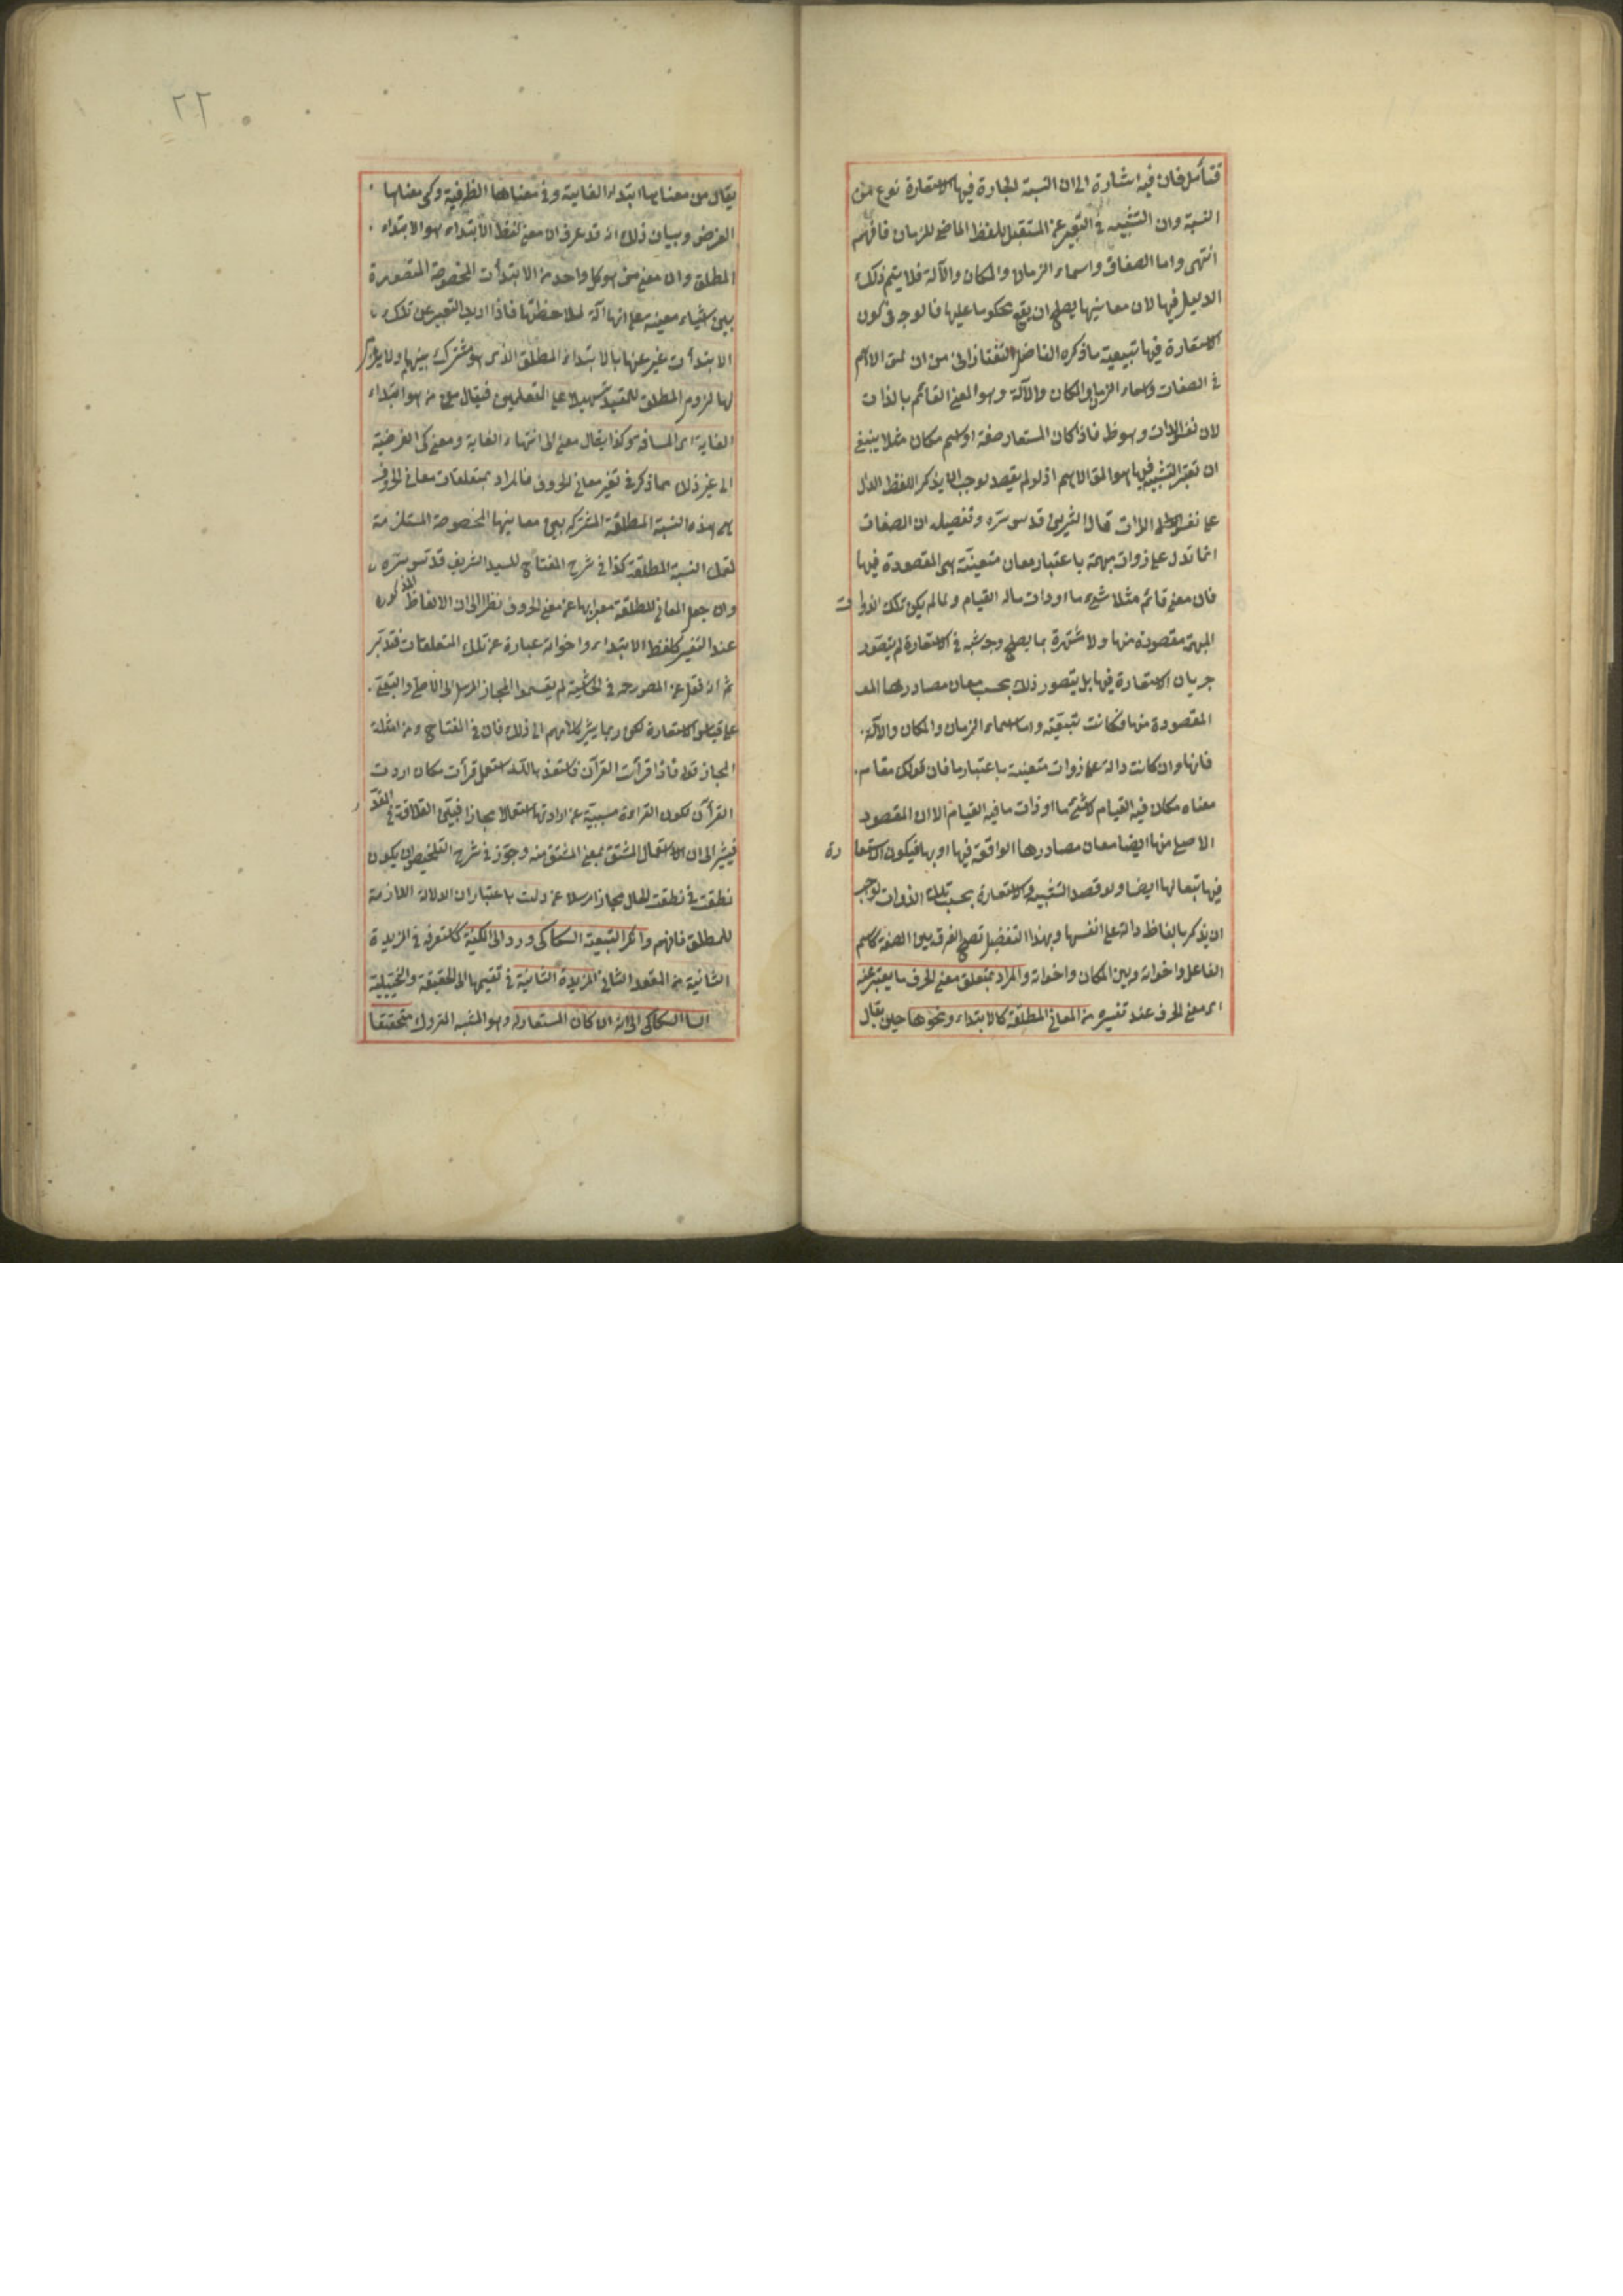 فتأمل فان فيه اشارة الى ان النسبة الجارية فيها الاستعارة نوع من
النسبة وان التشبيه في التعبير عن المستقبل بلفظ الماضي للزمان فافهم
انتهى واما الصفات واسماء الزمان والمكان والآلة فلا يتم ذلك
الدليل فيها لان معانيها يصلح ان يقع محكوما عليها فالوجه في كون
الاستعارة فيها تبعية ما ذكره الفاضل التفتازانى من ان المق الاهم
في الصفات واسماء الزمان والمكان والآلة وهو المعنى القائم بالذات
لان نفس الذات وهو ظ فاذا كان المستعار صفة او اسم مكان مثلا ينبغي
ان تعتبر التشبيه فيما هو المق الاهم اذ لو لم يقصد لوجب ان يذكر اللفظ الدال
على نفس الذات قال الشريف قدس سره وتفصيله ان الصفات
انما تدل على ذوات مبهمة باعتبار معان متعينة هي المقصودة فيها
فان معنى قائم مثلا شيء ما او ذات ما له القيام ولما لم يكن تلك الذوات
المبهمة مقصودة منها ولا مشتهرة بما يصلح وجه شبه في الاستعارة لم يتصور
جريان الاستعارة فيها بل يتصور ذلك بحسب معان مصادرها
المقصودة منها فكانت تبعية واما اسماء الزمان والمكان والآلة
فانها وان كانت دالة على ذوات متعينة باعتبار ما فان قولك مقام
معناه مكان فيه القيام لا شيء ما او ذات ما فيه القيام الا ان المقصود
الاصلي منها ايضا معان مصادرها الواقعة فيها او بها فيكون الاستعارة
فيها تبعا لها ايضا ولو قصد التشبيه والاستعارة بحسب تلك الذوات لوجب
ان يذكر بالفاظ دالة على انفسها وبهذا التفصيل تصح الفرق بين الصفة كاسم
الفاعل واخواته وبين المكان واخواته والمراد بمتعلق معنى الحرف ما يعبر عنه
اي معنى الحرف عند تفسيره من المعاني المطلقة كالابتداء ونحوها حين يقال
٢٢
يقال من معناها ابتداء الغاية وفي معناها الظرفية وكي معناها
الغرض وبيان ذلك انه قد عرف ان معنى لفظ الابتداء هو الابتداء
المطلق وان معنى من هو كل واحد من الابتدآت المخصوصة المتصورة
بين اشياء معينة على انها آلة لملاحظتها فاذا اريد التعبير عن تلك
الابتدآت عبر عنها بالابتداء المطلق الذي هو مشترك بينها
لها لزوم المطلق للمقيد تسهيلا على المتعلمين فيقال معنى من هو ابتداء
الغاية اي المسافة وكذا يقال معنى الى انتهاء الغاية ومعنى كي الغرضية
الى غير ذلك مما ذكر في تفسير معاني الحروف فالمراد بمتعلقات معاني الحروف
هي هذه النسبة المطلقة المشتركة بين معانيها المخصوصة المستلزمة
لتلك النسبة المطلقة كذا في شرح المفتاح للسيد الشريف قدس سره
وان جعل المعاني المطلقة معبرا بها عن معنى الحروف نظرا الى ان الالفاظ المذكورة
عند التفسير كلفظ الابتداء واخواته عبارة عن تلك المتعلقات فتدبر
ثم انه نقل عن المص رحمه في الحاشية لم يقسموا المجاز المرسل الى الاصلي والتبعي
على قياس الاستعارة لكن ربما يشير كلامهم الى ذلك قال في المفتاح ومن امثلة
المجاز قوله فاذا قرأت القرآن فاستعذ بالله استعمل قرأت مكان اردت
القرآن لكون القراءة مسببة عن ارادتها استعمالا مجازا
فيشير الى ان الاستعمال المشتق بمعنى المشتق منه وجوز في شرح التلخيص ان يكون
نطقت في نطقت الحال مجازا مرسلا عن دلت باعتبار ان الدلالة لازمة
للمنطق فافهم وانكر التبعية السكاكى وردها الى المكنية كما ستعرفه في الفريدة
الثانية من العقد الثاني الفريدة الثانية في تقسيمها الى الحقيقية والتخييلية
السكاكى الى انه ان كان المستعار له وهو المشبه المتروك متحققا